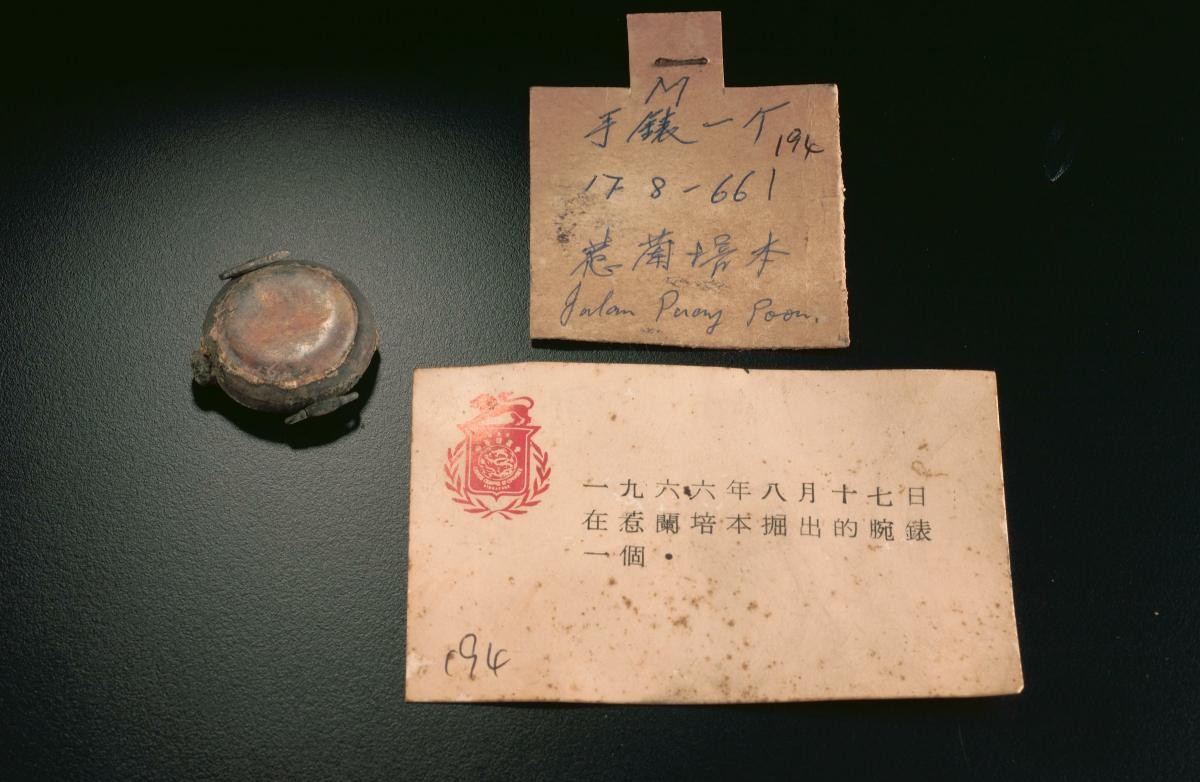 M
手錶一个
194
17 8-66 1
惹蘭培本
Jalan Puay Poon.
一九六六年八月十七日
在惹蘭培本掘出的腕錶
一個•
194